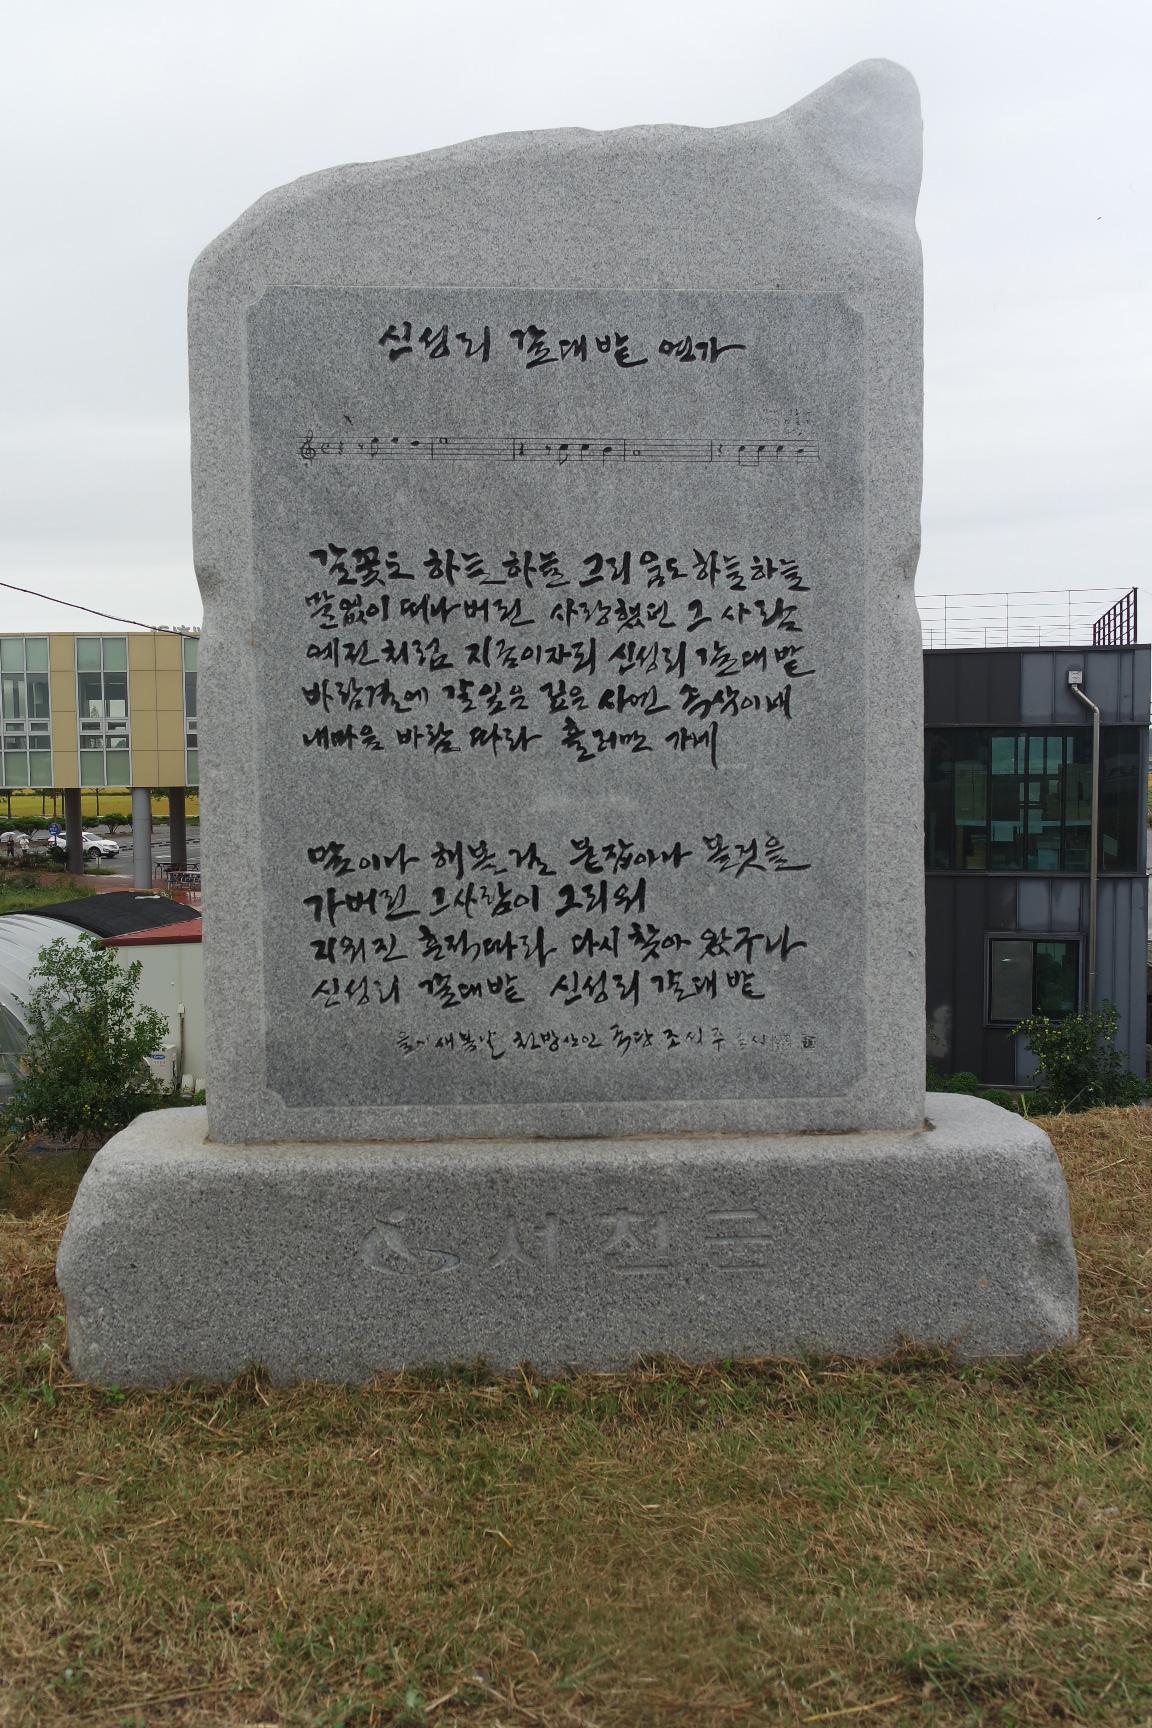 신성리 갈대밭 연가
갈꽃도 하늘하늘 그리움도 하늘하늘
말없이 떠나버린 사랑했던 그 사람
예전처럼 지금이자리 신성리 갈대밭
바람결에 갈잎은 깊은 사연 속삭이네
내마음 바람 따라 흘러만 가네
말이나 해볼걸 붙잡아나 볼것을
가버린 그사람이 그리워
지워진 흔적따라 다시 찾아 왔구나
신성리 갈대밭 신성리 갈대밭
새봄날 천방산인 조시주
서천군